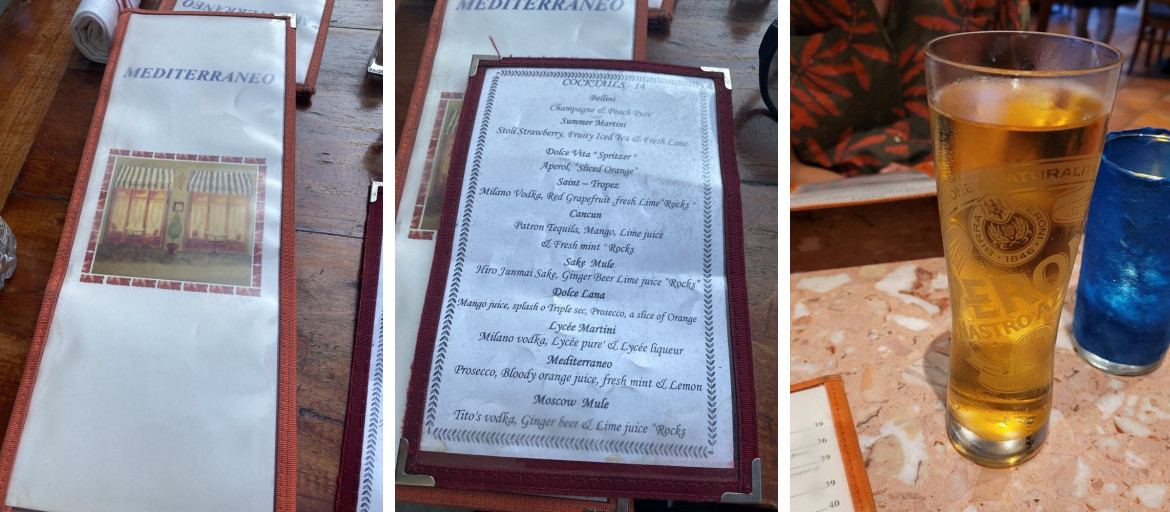 MEDITERRANEO
MEDITERRANEO
COCKTAILS 14
Bellini
Champagne & Peach Pure'
Summer Martini
Stoli Strawberry, Fruity Iced Tea & Fresh Lime
Dolce Vita " Spritzer "
Aperol, "Sliced Orange"
Saint – Tropez
Milano Vodka, Red Grapefruit ,fresh Lime"Rocks "
Cancun
Patron Tequila, Mango, Lime juice
& Fresh mint "Rocks
Sake Mule
Hiro Junmai Sake, Ginger Beer Lime juice "Rocks"
Dolce Lana
Mango juice, splash o Triple sec, Prosecco, a slice of Orange
Lycée Martini
Milano vodka, Lycée pure' & Lycée liqueur
Mediterraneo
Prosecco, Bloody orange juice, fresh mint & Lemon
Moscow Mule
Tito's vodka, Ginger beer & Lime juice "Rocks
BIRRA
1846
NASTRO
39
36
39
39
40